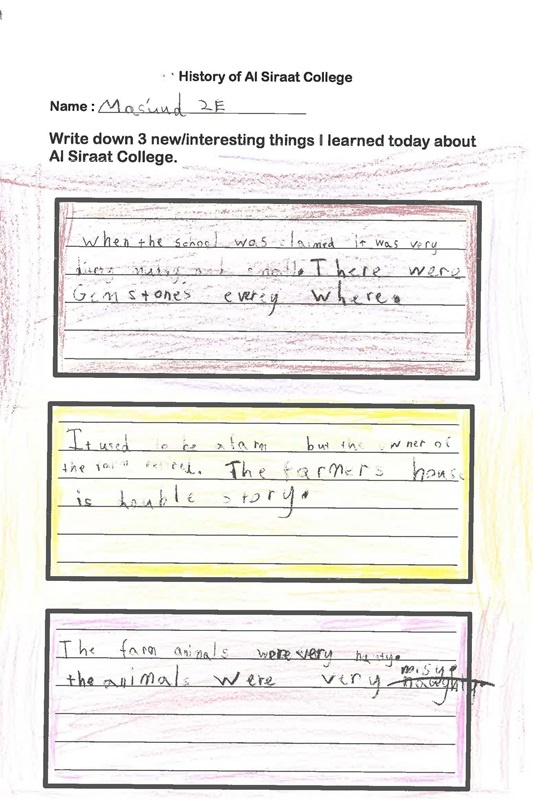 History of Al Siraat College
Name : Mas'uud 2E
Write down 3 new/interesting things I learned today about
Al Siraat College.
When the school was claimed it was very
and small. There were
Gem stones everey where.
It used to be a farm but the owner of
the farm retired. The farmers house
is houble story.
The farm animals were very
the animals were very naughty